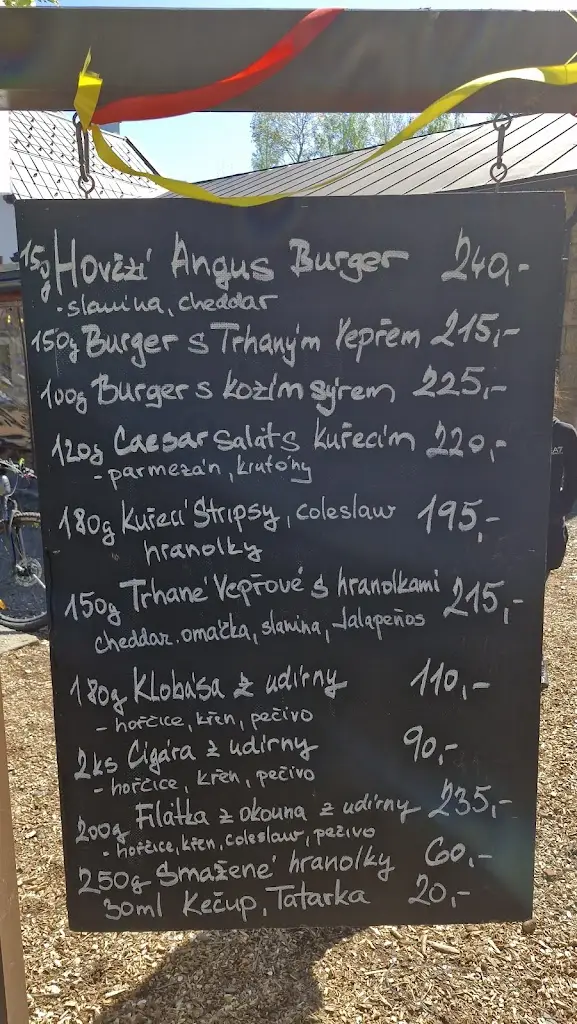 15g Hovězí Angus Burger 240,-
- slanina, cheddar
150g Burger s Trhaným Vepřem 215,-
100g Burger s kozím sýrem 225,-
120g Caesar salát s kuřecím 220,-
- parmezán, krutóny
180g Kuřecí Stripsy, coleslaw 195,-
hranolky
150g Trhané Vepřové s hranolkami 215,-
cheddar. omáčka, slanina, Jalapeños
180g Klobása z udírny 110,-
- hořčice, křen, pečivo
2ks Cigára z udírny 90,-
- hořčice, křen, pečivo
200g Filátka z okouna z udírny 235,-
- hořčice, křen, coleslaw, pečivo
250g Smažené hranolky 60,-
30ml Kečup, Tatarka 20,-